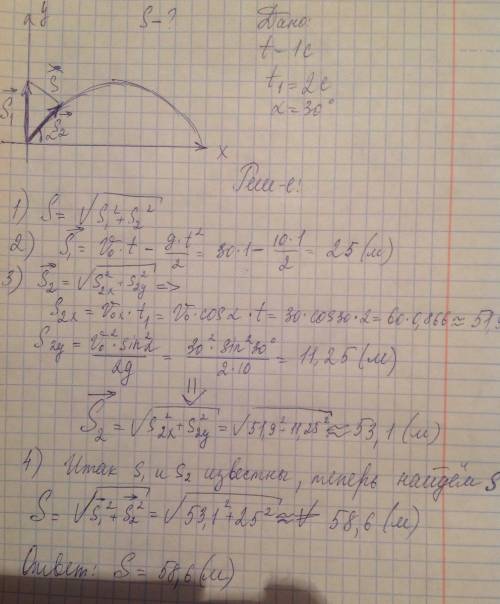 y S - ? Дано:
t - 1c
t₁ = 2c
α = 30°
S⃗
S⃗₁ S⃗₂
α x
Реш-е:
1) S = √(S₁² + S₂²)
2) S⃗₁ = v₀·t - g·t²/2 = 30·1 - 10·1/2 = 25 (м)
3) S⃗₂ = √(S₂ₓ² + S₂y²) =>
S₂ₓ = v₀ₓ·t₁ = v₀·cosα·t = 30·cos30·2 = 60·0,866 ≈ 51,9
S₂y = v₀²·sin²α/2g = 30²·sin²30°/2·10 = 11,25 (м)
S⃗₂ = √(S₂ₓ² + S₂y²) = √(51,9² - 11,25²) ≈ 53,1 (м)
4) Итак S₁ и S₂ известны, теперь найдём S
S = √(S⃗₁² + S⃗₂²) = √(53,1² + 25²) ≈ 58,6 (м)
Ответ: S = 58,6 (м)